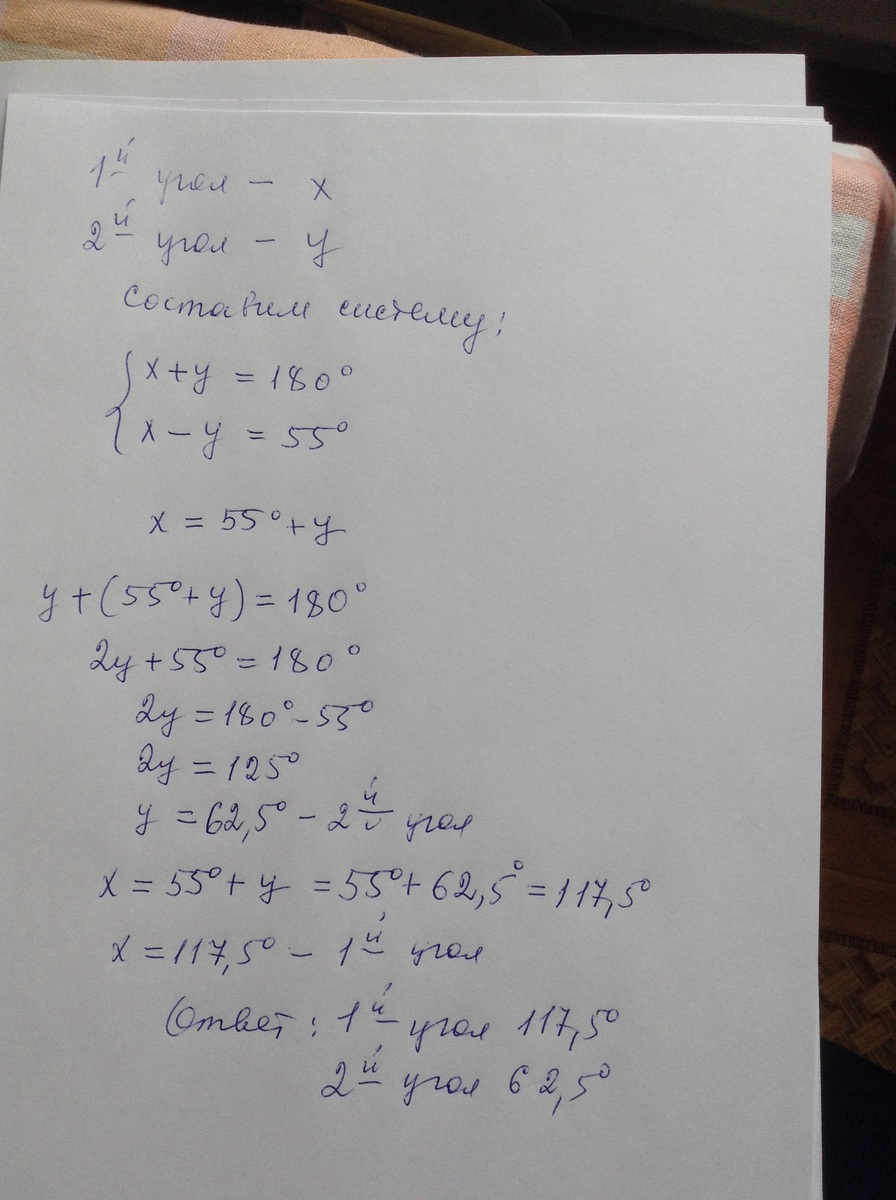 1й угол - x
2й угол - y
Составим систему:
{ x + y = 180°
x - y = 55°
x = 55° + y
y + (55° + y) = 180°
2y + 55° = 180°
2y = 180° - 55°
2y = 125°
y = 62,5° - 2й угол
x = 55° + y = 55° + 62,5° = 117,5°
x = 117,5° - 1й угол
Ответ: 1й угол 117,5°
2й угол 62,5°